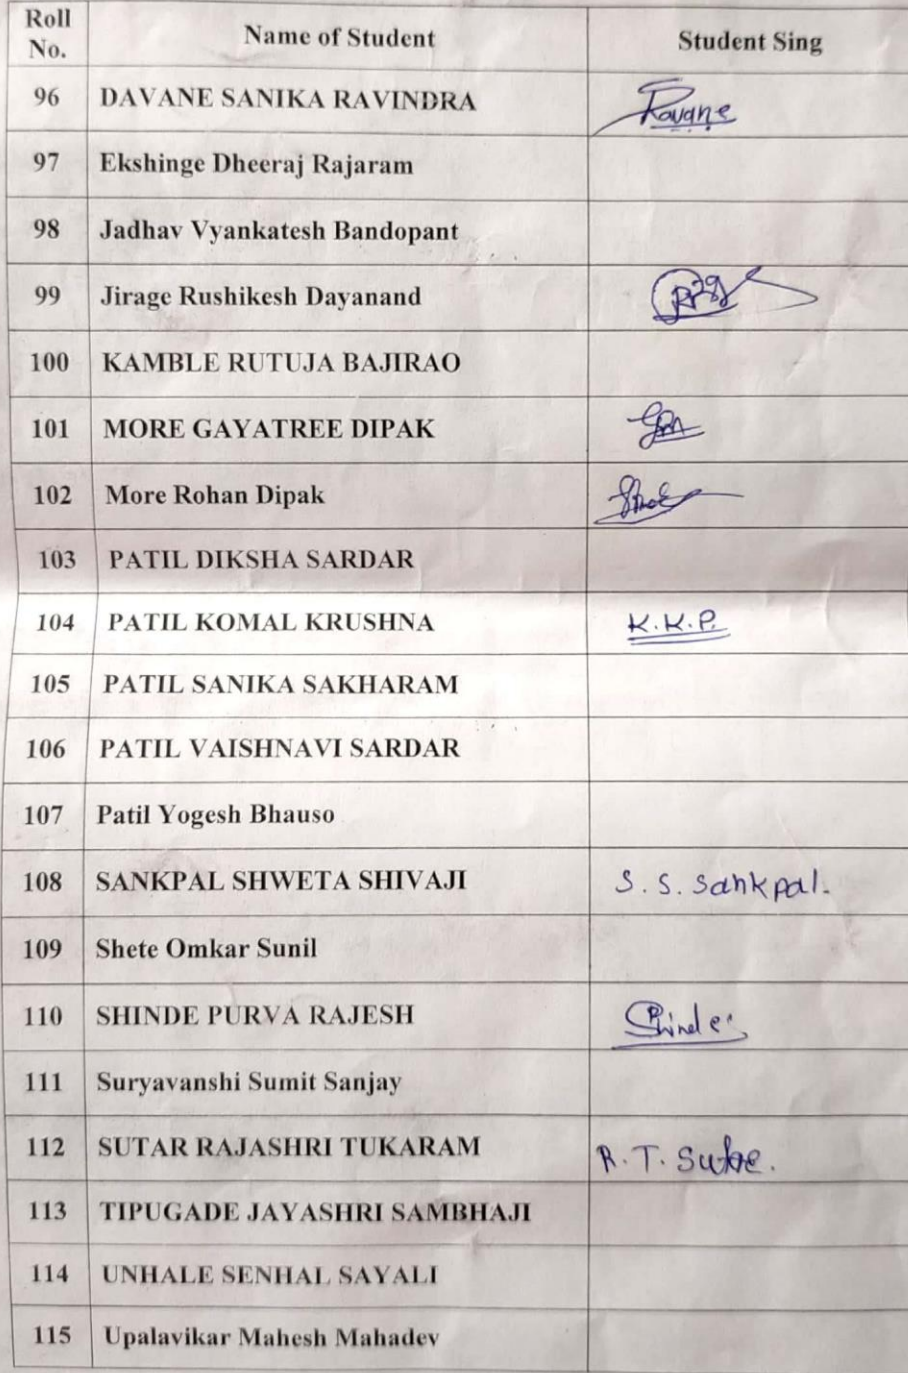 Roll No. Name of Student Student Sing
96 DAVANE SANIKA RAVINDRA
97 Ekshinge Dheeraj Rajaram
98 Jadhav Vyankatesh Bandopant
99 Jirage Rushikesh Dayanand
100 KAMBLE RUTUJA BAJIRAO
101 MORE GAYATREE DIPAK
102 More Rohan Dipak
103 PATIL DIKSHA SARDAR
104 PATIL KOMAL KRUSHNA K.K.P.
105 PATIL SANIKA SAKHARAM
106 PATIL VAISHNAVI SARDAR
107 Patil Yogesh Bhauso
108 SANKPAL SHWETA SHIVAJI S. S. Sankpal.
109 Shete Omkar Sunil
110 SHINDE PURVA RAJESH Shinde
111 Suryavanshi Sumit Sanjay
112 SUTAR RAJASHRI TUKARAM R.T.
113 TIPUGADE JAYASHRI SAMBHAJI
114 UNHALE SENHAL SAYALI
115 Upalavikar Mahesh Mahadev